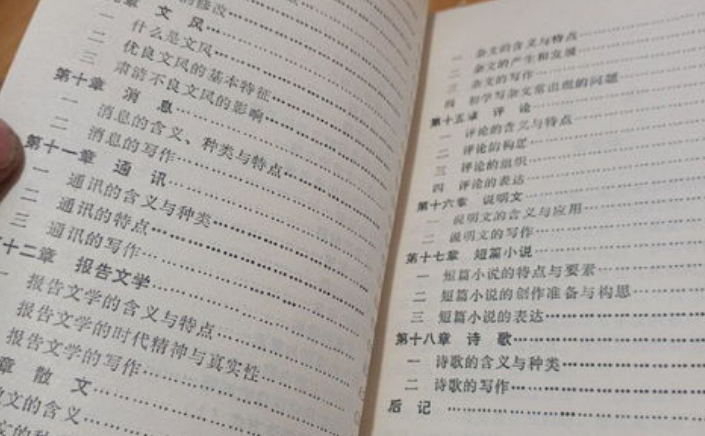 的修改
章 文风
一 什么是文风
二 优良文风的基本特征
三 肃清不良文风的影响
第十章 消息
一 消息的含义、种类与特点
二 消息的写作
第十一章 通讯
一 通讯的含义与种类
二 通讯的特点
三 通讯的写作
十二章 报告文学
一 报告文学的含义与特点
报告文学的时代精神与真实性
报告文学的写作
章 散文
文的含义
的种
一 杂文的含义与特点
二 杂文的产生和发展
三 杂文的写作
四 初学写杂文常出现的问题
第十五章 评论
一 评论的含义与特点
二 评论的构思
三 评论的组织
四 评论的表达
第十六章 说明文
一 说明文的含义与应用
二 说明文的写作
第十七章 短篇小说
一 短篇小说的特点与要素
二 短篇小说的创作准备与构思
三 短篇小说的表达
第十八章 诗歌
一 诗歌的含义与种类
二 诗歌的写作
后记